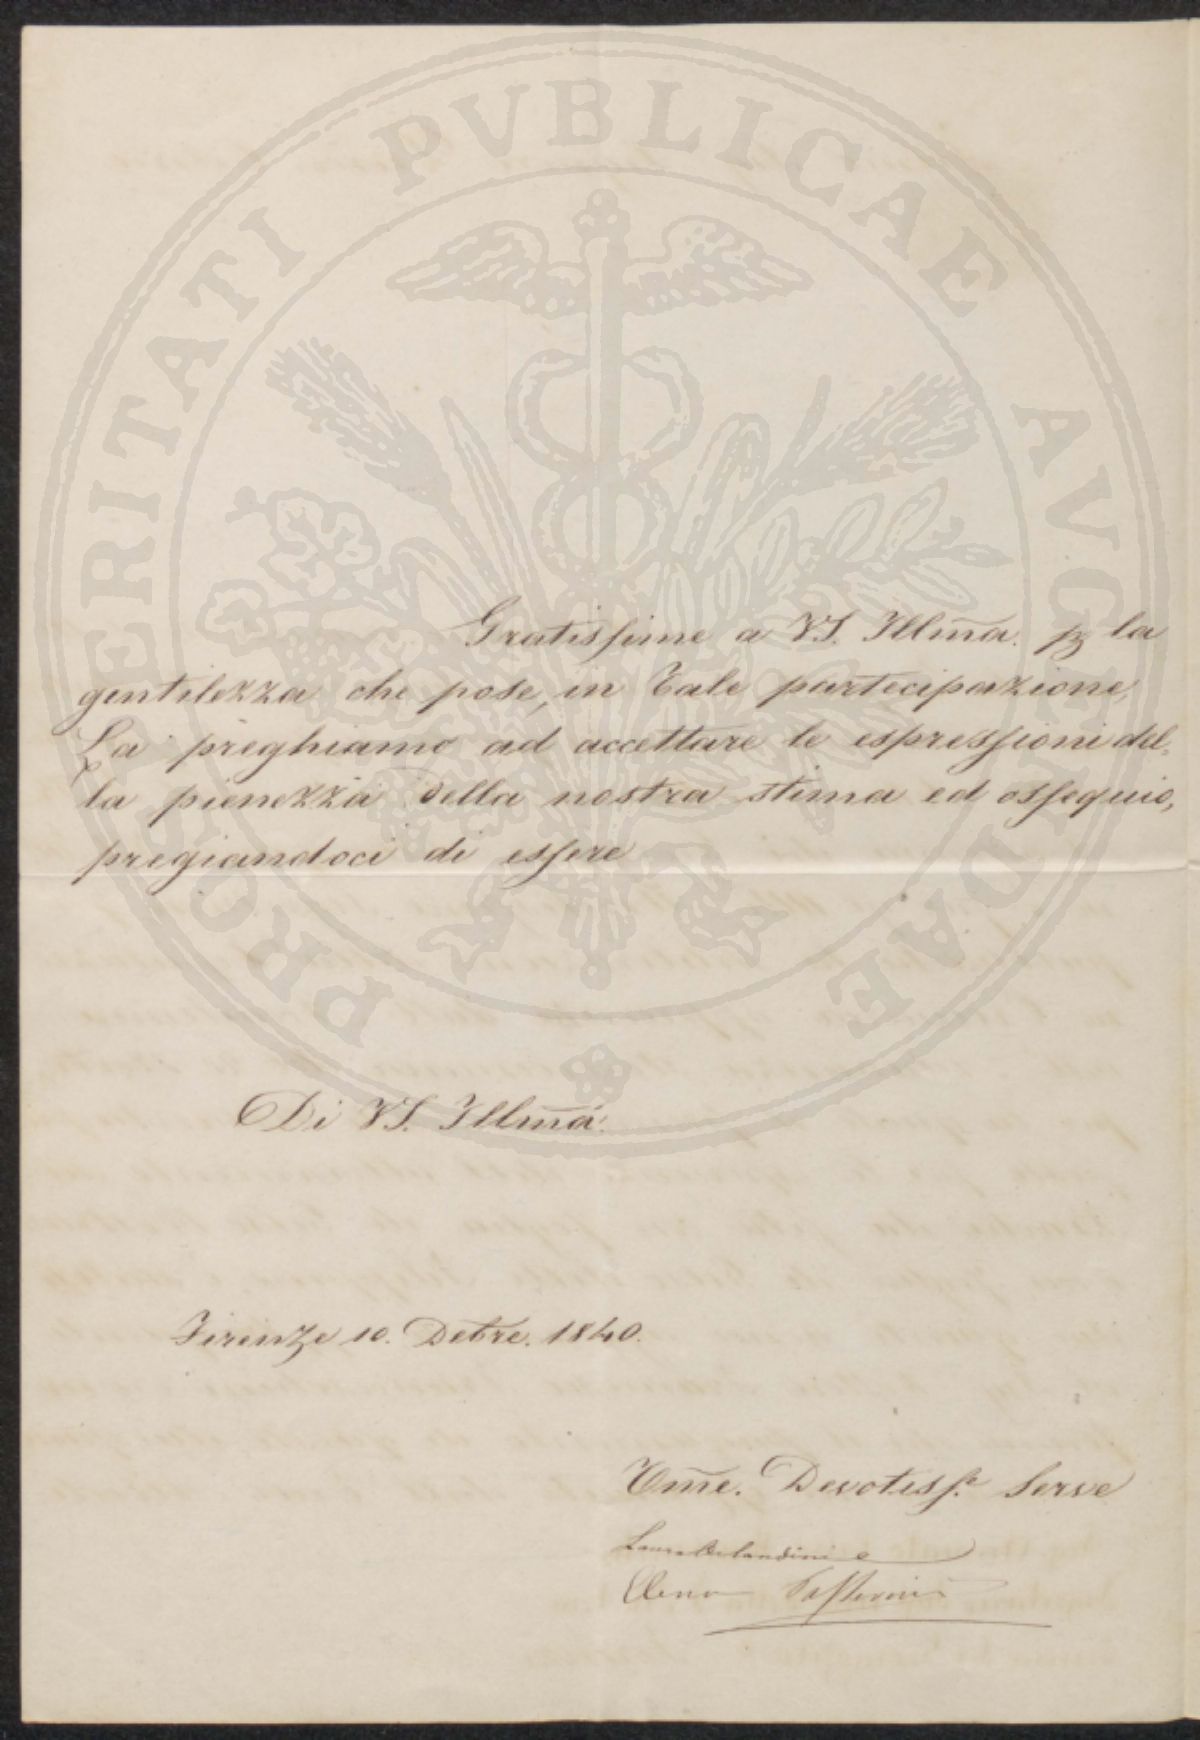 PROSPERITATI PVBLICAE AVGENDAE
Gratissime a VS. Illm̃a. p la
gentilezza che pose, in Tale partecipazione,
La preghiamo ad accettare le espressioni del-
la pienezza della nostra stima ed ossequio,
pregiandoci di essere
Di VS. Illm̃a.
Firenze 10. Debre. 1840.
Um̃e. Devotiss.e Serve
Laura Orlandini e
Elena